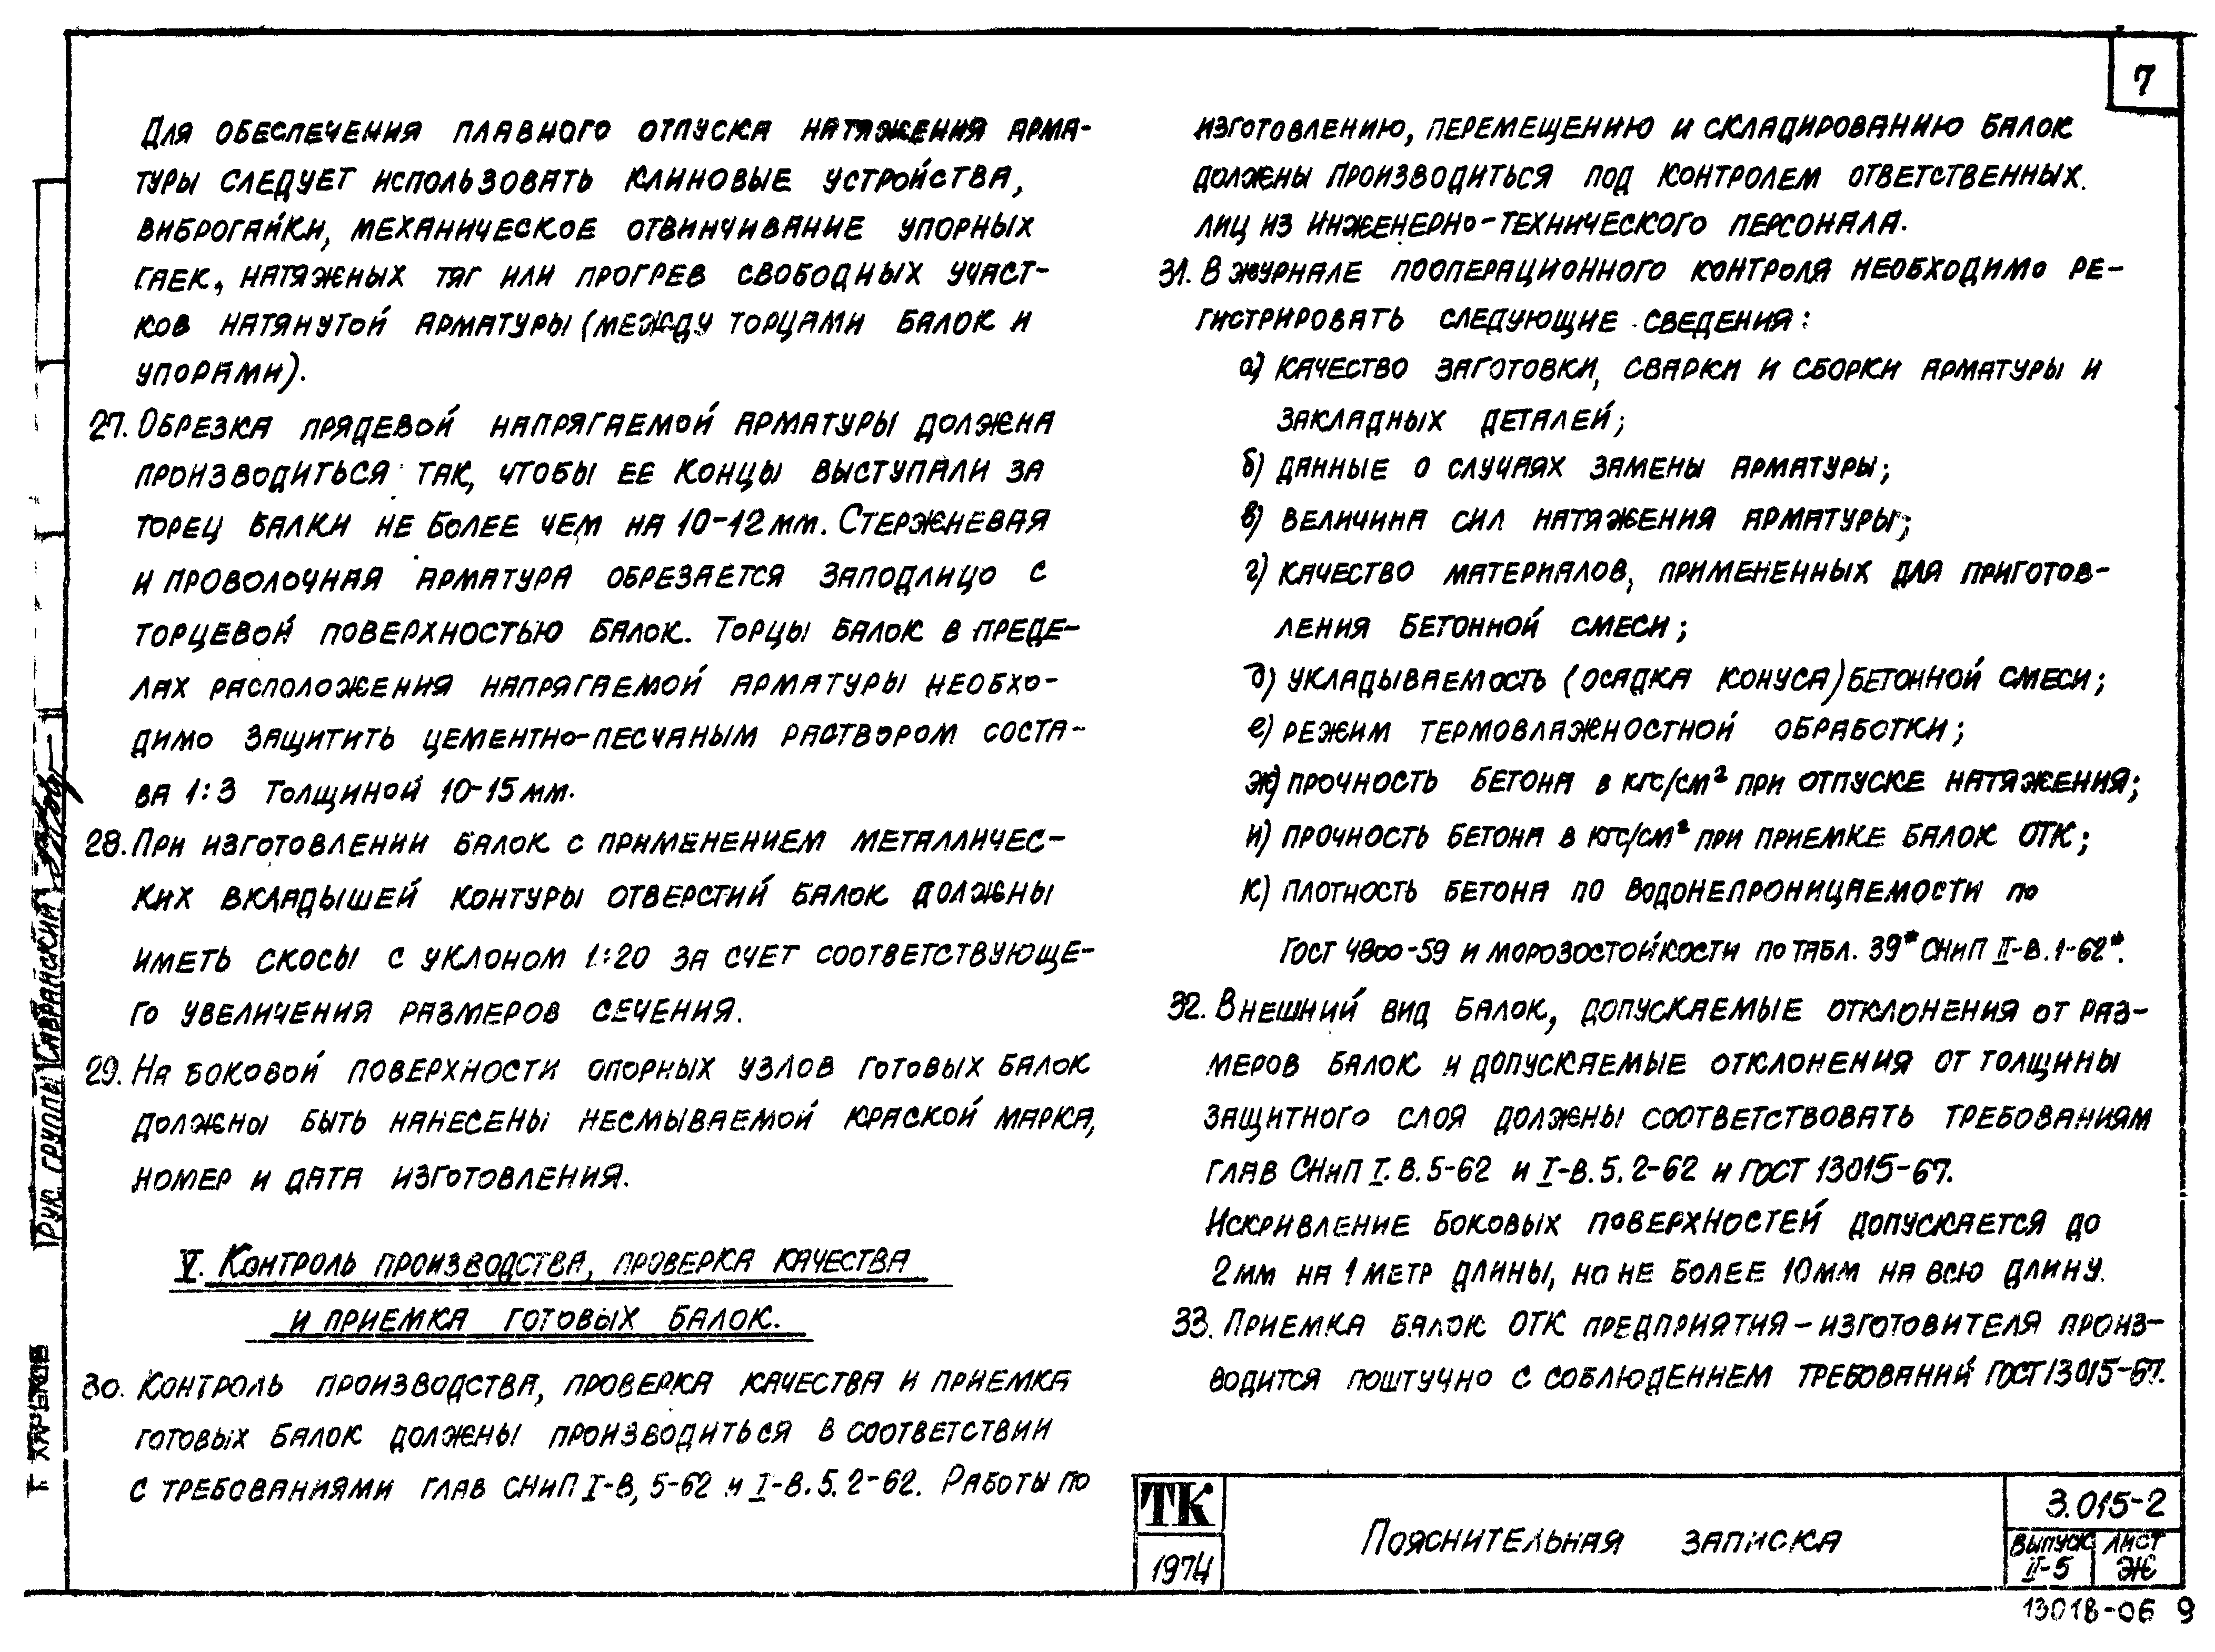 7
Для обеспечения плавного отпуска натяжения арма-
туры следует использовать клиновые устройства,
виброгайки, механическое отвинчивание упорных
гаек, натяжных тяг или прогрев свободных участ-
ков натянутой арматуры (между торцами балок и
упорами).
27. Обрезка прядевой напрягаемой арматуры должна
производиться так, чтобы ее концы выступали за
торец балки не более чем на 10-12 мм. Стержневая
и проволочная арматура обрезается заподлицо с
торцевой поверхностью балок. Торцы балок в преде-
лах расположения напрягаемой арматуры необхо-
димо защитить цементно-песчаным раствором соста-
ва 1:3 толщиной 10-15 мм.
28. При изготовлении балок с применением металличес-
ких вкладышей контуры отверстий балок должны
иметь скосы с уклоном 1:20 за счет соответствующе-
го увеличения размеров сечения.
29. На боковой поверхности опорных узлов готовых балок
должны быть нанесены несмываемой краской марка,
номер и дата изготовления.
V. Контроль производства, проверка качества
и приемка готовых балок.
30. Контроль производства, проверка качества и приемка
готовых балок должны производиться в соответствии
с требованиями глав СНиП I-В, 5-62 и I-В.5.2-62. Работы по
изготовлению, перемещению и складированию балок
должны производиться под контролем ответственных
лиц из инженерно-технического персонала.
31. В журнале пооперационного контроля необходимо ре-
гистрировать следующие сведения:
а) качество заготовки, сварки и сборки арматуры и
закладных деталей;
б) данные о случаях замены арматуры;
в) величина сил натяжения арматуры;
г) качество материалов, примененных для приготов-
ления бетонной смеси;
д) укладываемость (осадка конуса) бетонной смеси;
е) режим термовлажностной обработки;
ж) прочность бетона в кгс/см² при отпуске натяжения;
и) прочность бетона в кгс/см² при приемке балок ОТК;
к) плотность бетона по водонепроницаемости по
ГОСТ 4800-59 и морозостойкости по табл. 39* СНиП II-В.1-62*.
32. Внешний вид балок, допускаемые отклонения от раз-
меров балок и допускаемые отклонения от толщины
защитного слоя должны соответствовать требованиям
глав СНиП I.В.5-62 и I-В.5.2-62 и ГОСТ 13015-67.
Искривление боковых поверхностей допускается до
2 мм на 1 метр длины, но не более 10 мм на всю длину.
33. Приемка балок ОТК предприятия-изготовителя произ-
водится поштучно с соблюдением требований ГОСТ 13015-67.
Рук. группы Савранский
г. Харьков
ТК
1974
Пояснительная записка
3.015-2
Выпуск II-5
Лист Ж
13018-06 9